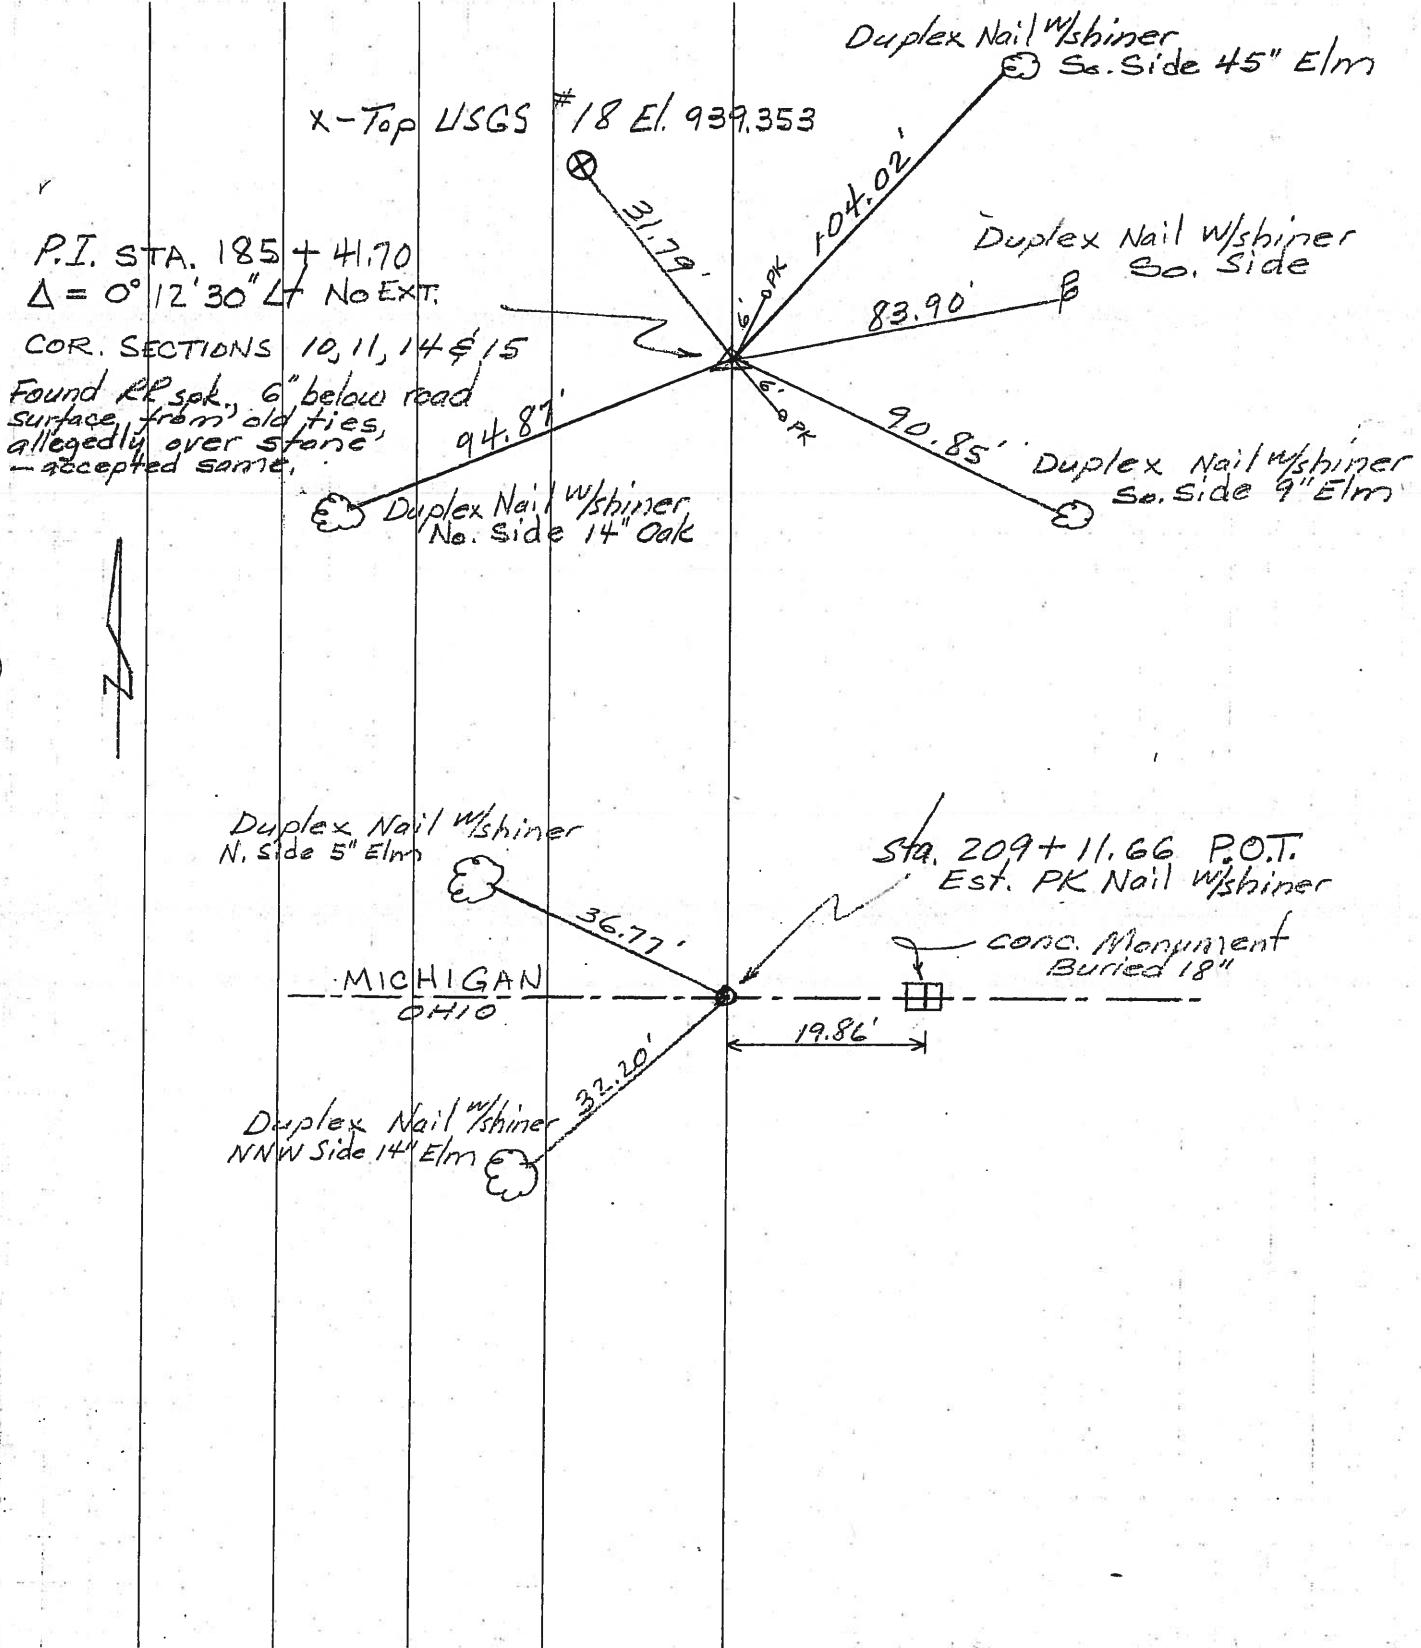 Duplex Nail w/shiner
So. Side 45" Elm
X-Top USGS #18 El. 939.353
104.02'
31.79'
P.I. STA. 185 + 41.70
Δ = 0° 12' 30" Lt No EXT.
Duplex Nail w/shiner
So. Side
6' PK
83.90'
COR. SECTIONS 10, 11, 14 & 15
Found RR spk. 6" below road
surface, from old ties,
allegedly over stone
- accepted same.
94.87'
6' PK
90.85'
Duplex Nail w/shiner
So. Side 9" Elm
Duplex Nail w/shiner
No. Side 14" Oak
Duplex Nail w/shiner
N. Side 5" Elm
Sta. 209 + 11.66 P.O.T.
Est. PK Nail w/shiner
36.77'
Conc. Monument
Buried 18"
MICHIGAN
OHIO
19.86'
32.20'
Duplex Nail w/shiner
NNW Side 14" Elm